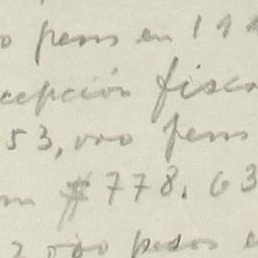 o pesos en 191
cepción fisca
53,000 pesos
$778.63
2 000 pesos